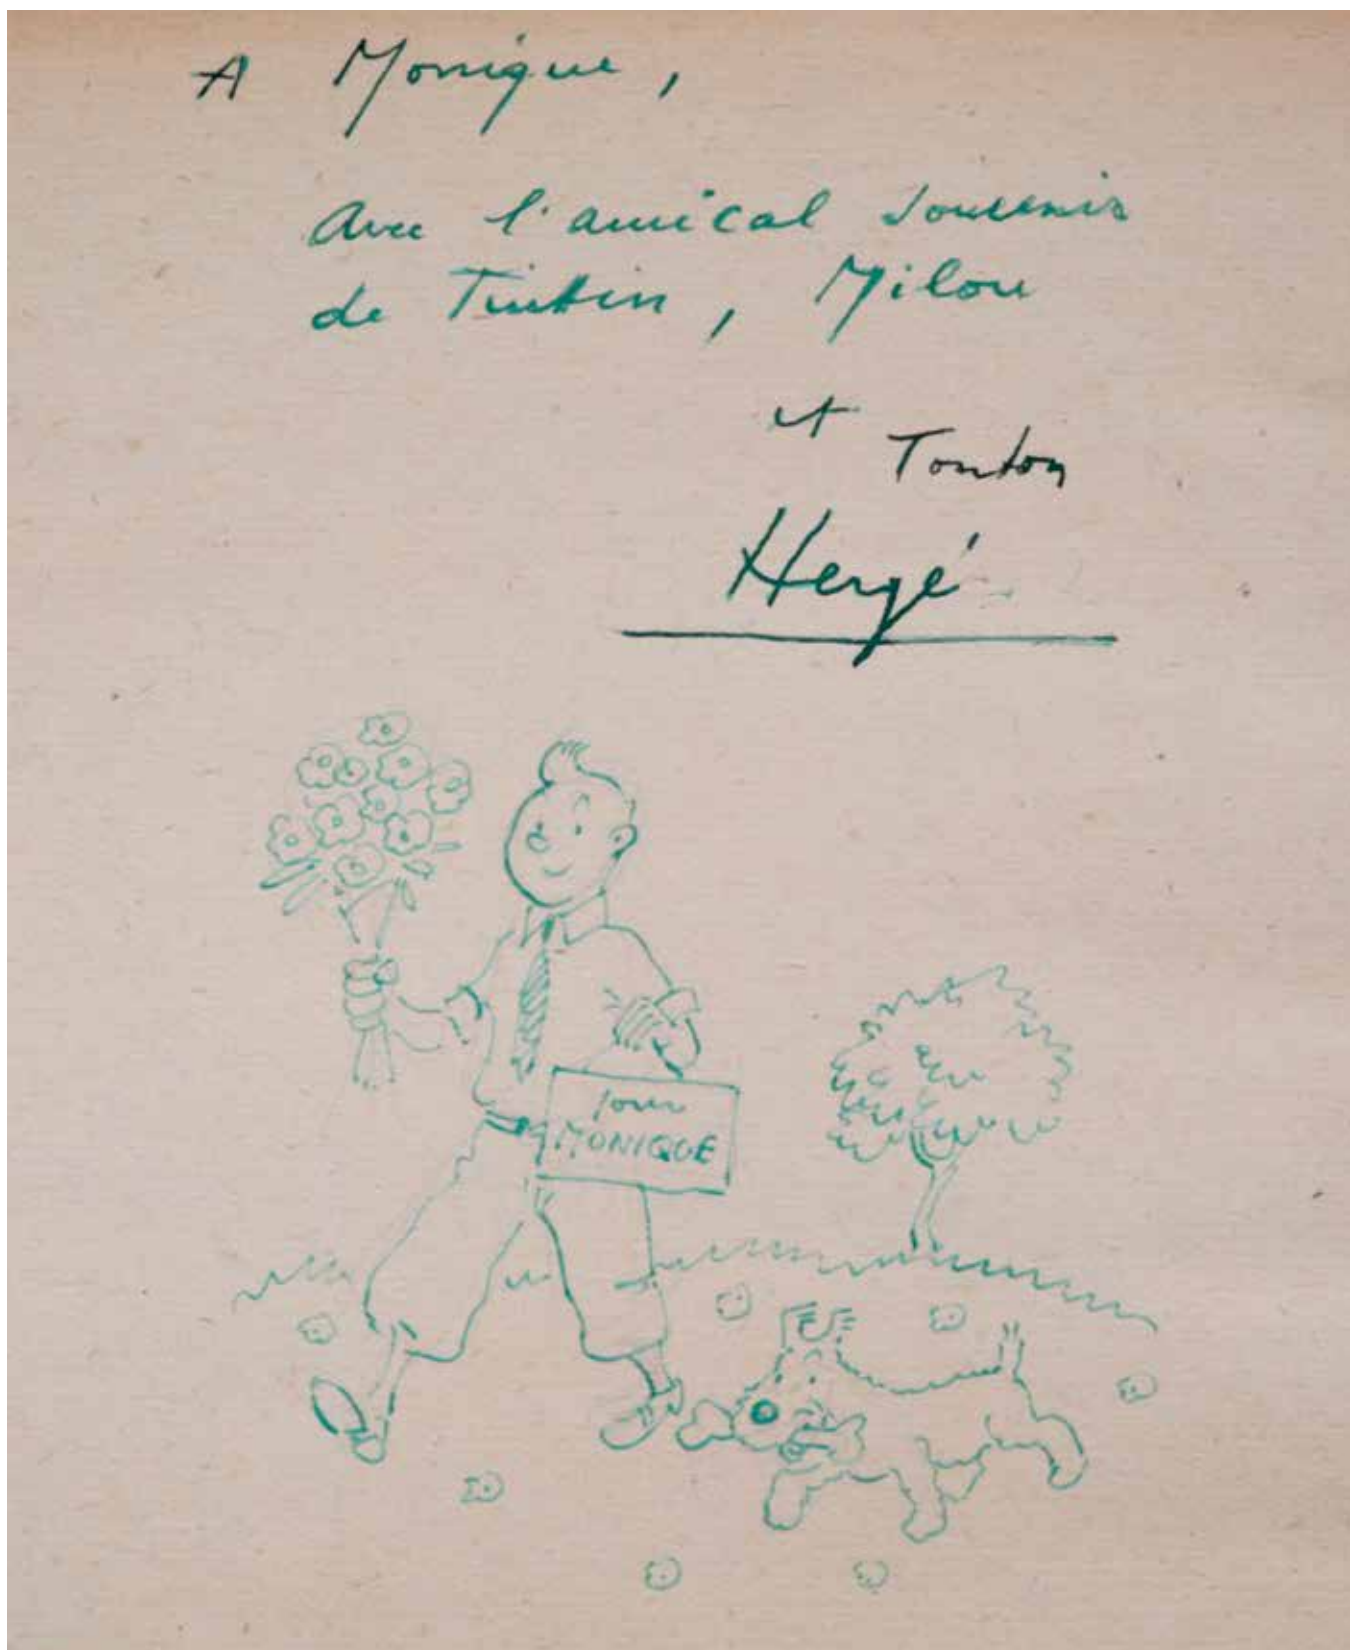 A Monique,
Avec l'amical souvenir
de Tintin, Milou
et Tonton
Hergé
Pour
MONIQUE